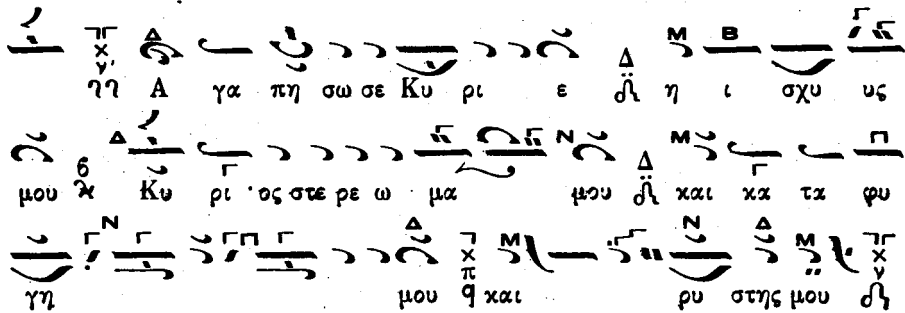 Α γα πη σω σε Κυ ρι ε η ι σχυ υς
μου Κυ ρι ος στε ρε ω μα μου και κα τα φυ
γη μου και ρυ στης μου